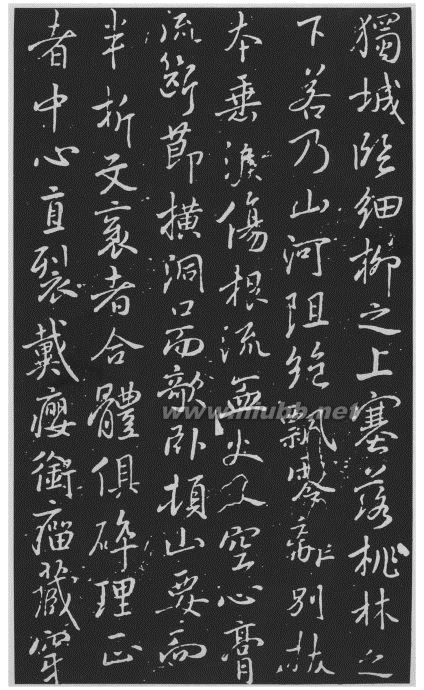 獨城臨細柳之上塞落桃林之
下若乃山河阻絕飄零離別拔
本垂淚傷根流血火入空心膏
流斷節橫洞口而敧臥頓山要而
半折文衺者合體俱碎理正
者中心直裂戴癭銜瘤藏穿
www.niubb.net